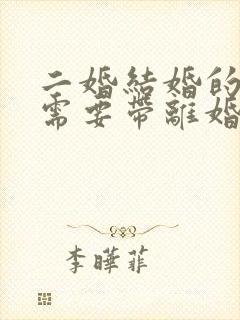 二婚結婚的
需要帶離婚
李曄菲